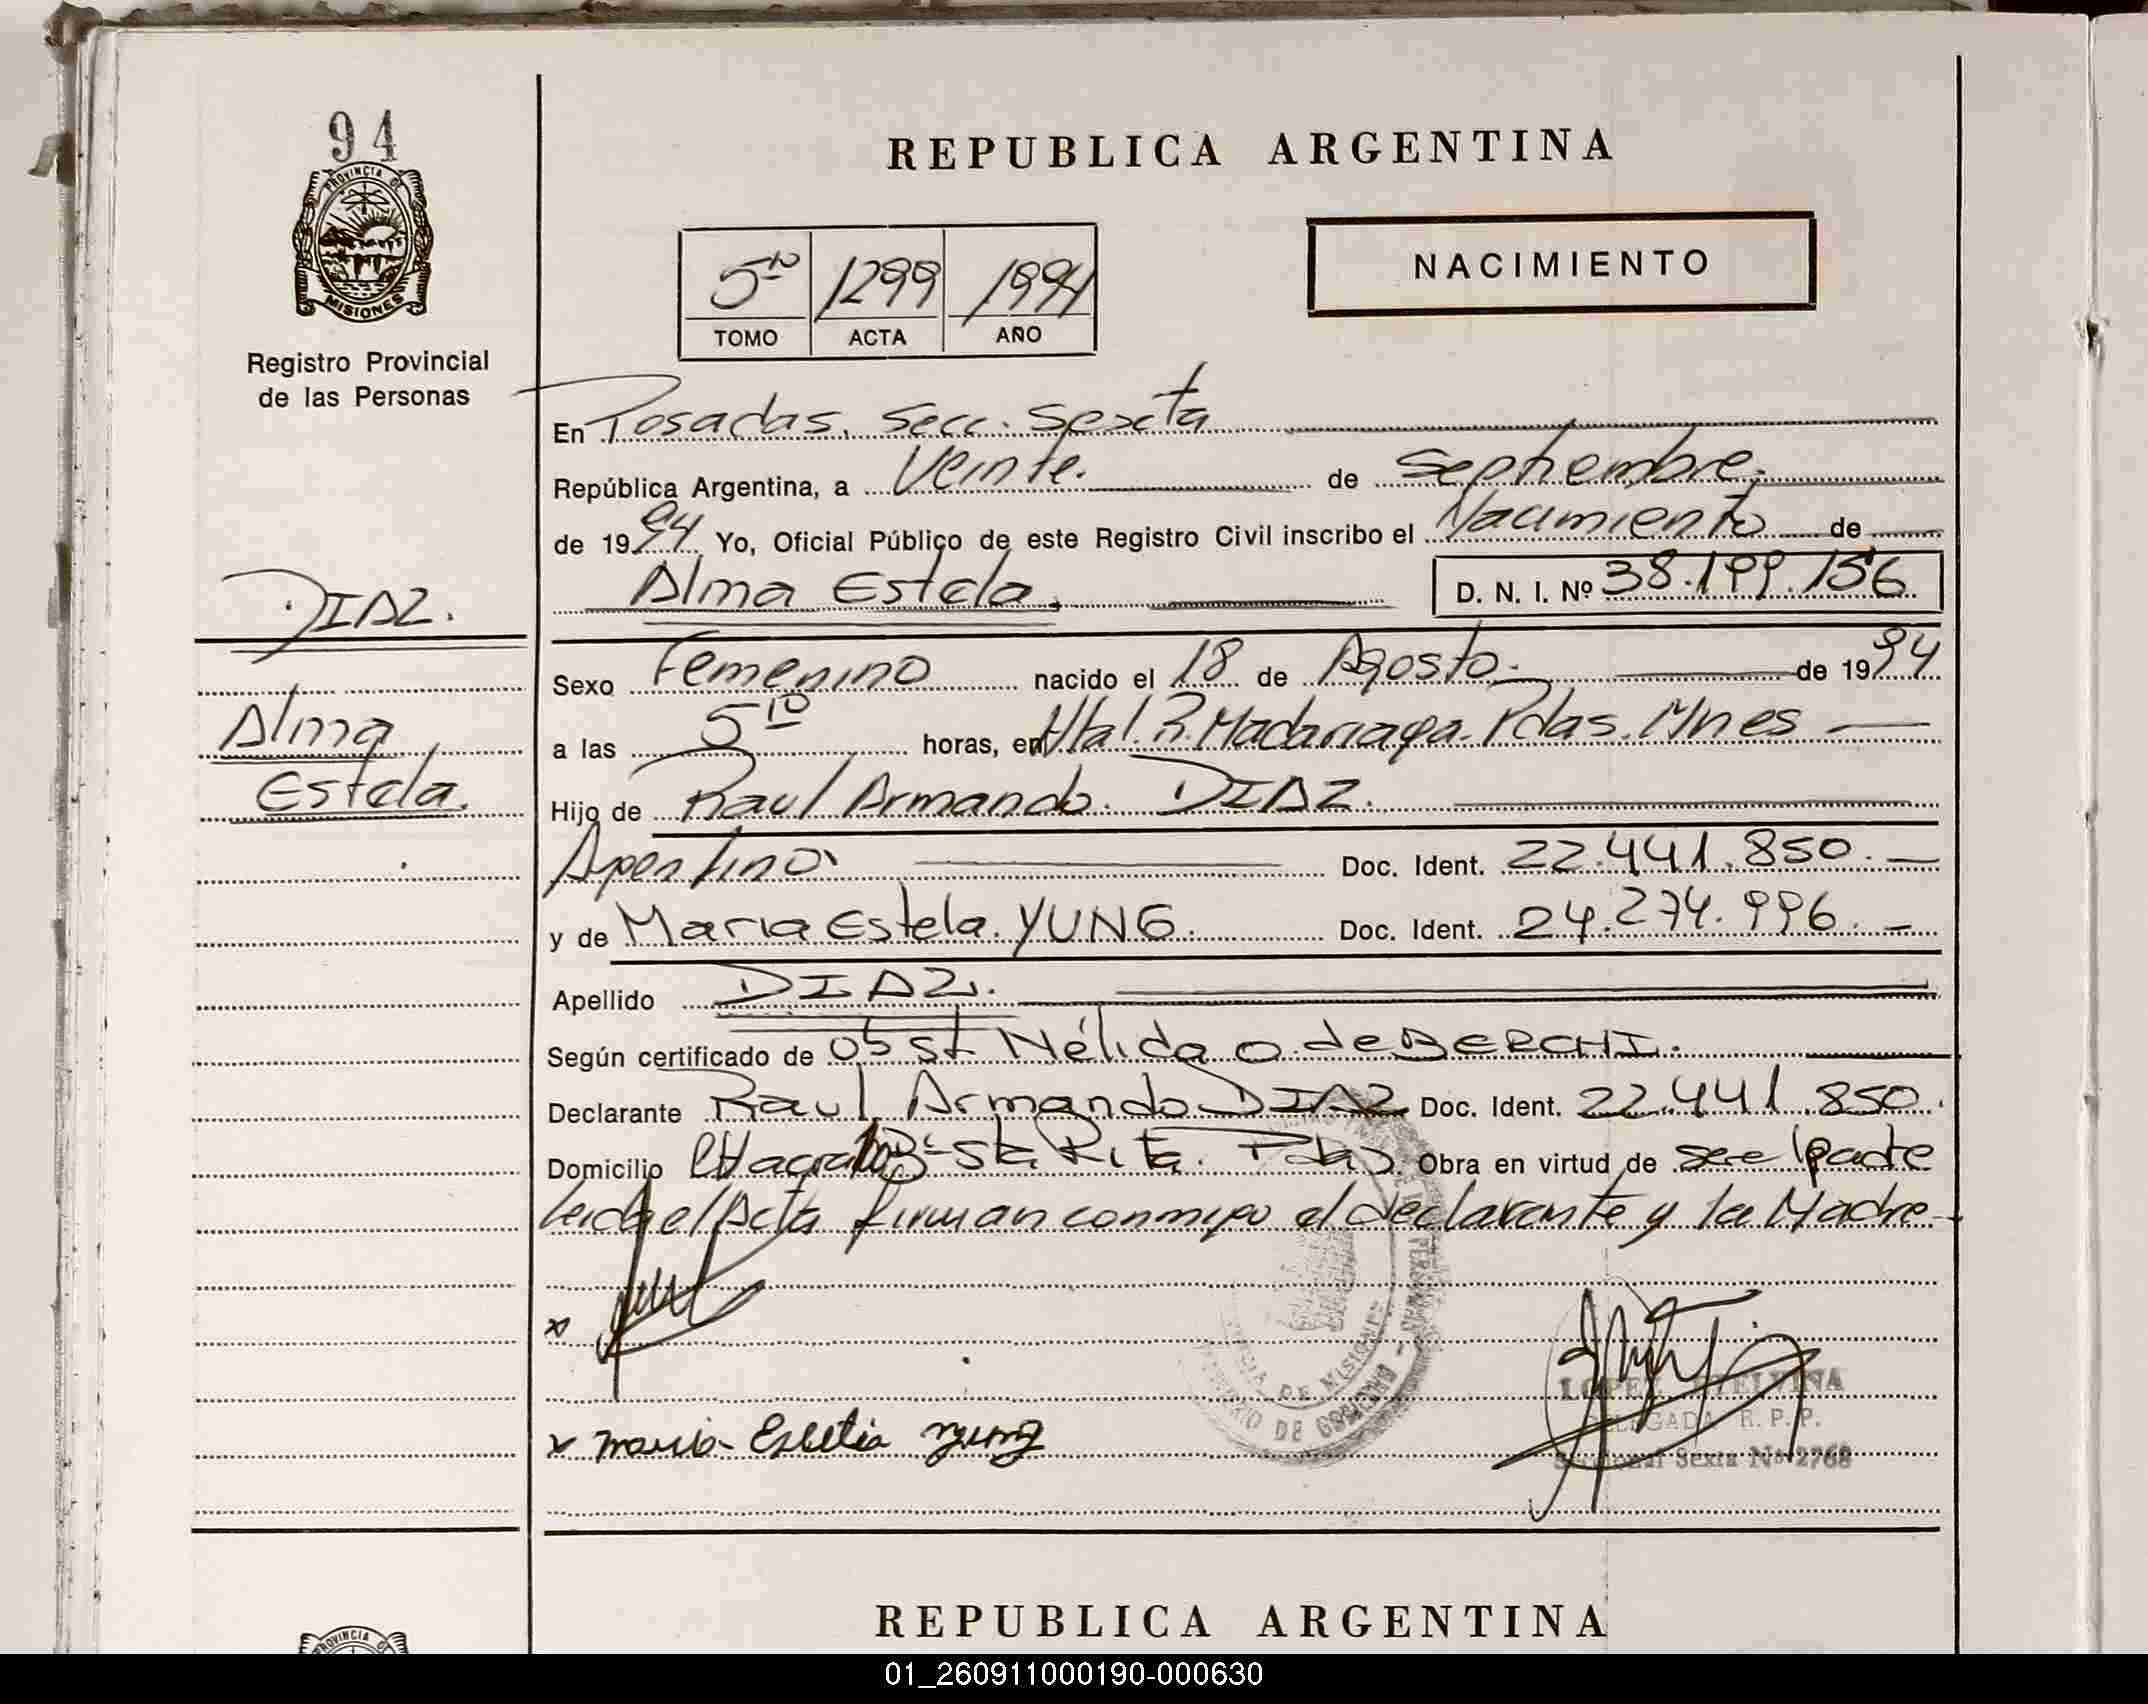 94
PROVINCIA DE
MISIONES
Registro Provincial
de las Personas
DIAZ.
Alma
Estela.
REPUBLICA ARGENTINA
5to 1299 1994
TOMO ACTA AÑO
NACIMIENTO
En Posadas, Secc. Sexta
República Argentina, a Veinte. de Septiembre.
de 1994 Yo, Oficial Público de este Registro Civil inscribo el Nacimiento de
Alma Estela. D. N. I. Nº 38.199.156
Sexo Femenino nacido el 18 de Agosto. de 1994
a las 5 10 horas, en Htal. R. Madariaga. Pdas. Mnes
Hijo de Raul Armando. DIAZ.
Argentino. Doc. Ident. 22.441.850.
y de Maria Estela. YUNG. Doc. Ident. 24.274.996.
Apellido DIAZ.
Según certificado de Obst Nélida O. de BERCHI.
Declarante Raul Armando DIAZ Doc. Ident. 22.441.850.
Domicilio Bº Sta Rita. Pdas. Obra en virtud de ser el padre
leida el Acta firman conmigo el declarante y la Madre
x
x Maria Estela Yung
PROVINCIA DE MISIONES
MINISTERIO DE GOBIERNO
LOPEZ ETELVINA
DELEGADA R. P. P.
Seccional Sexta Nº 2768
PROVINCIA DE
REPUBLICA ARGENTINA
01_260911000190-000630